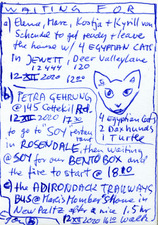 WAITING FOR
a) Elena, Marc, Kostja + Kyrill von
Schenck to get ready + leave
the house w/ 4 EGYPTIAN CATS
in JEWETT, Deer Valley Lane
12 XII 2020 1244
b) PETRA GEHRUNG
@ 145 Cottekill Rd.
12 XII 2020 1730
to go to SOY
in ROSENDALE, then waiting
@ SOY for our BENTO BOX and
the fire to start @ 1800
4 Egyptian Cats
2 Dachshunds
1 Turtle
c) the ADIRONDACK TRAILWAYS
BUS @ Marc's Number 5 House in
New Paltz after a nice 1.5 hr
12 XII 2020 walk